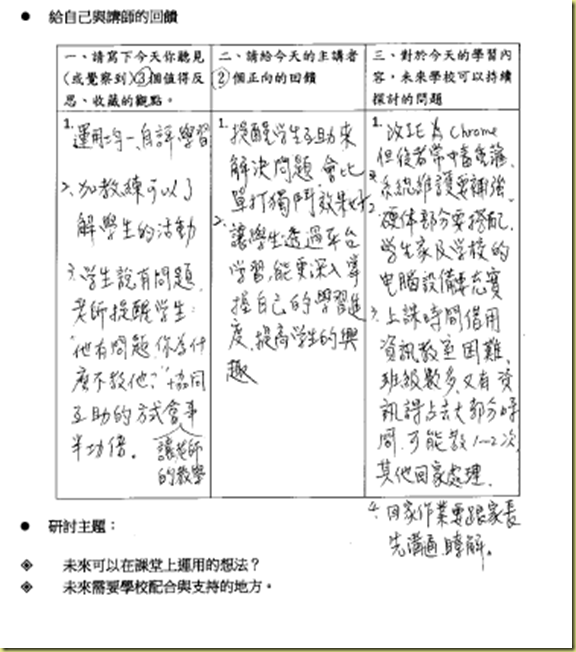 ● 給自己與講師的回饋
一、請寫下今天你聽見
(或覺察到)③個值得反
思、收藏的觀點。
二、請給今天的主講者
②個正向的回饋
三、對於今天的學習內
容,未來學校可以持續
探討的問題
1. 運用均一、自評學習
2. 加教練可以了
解學生的活動
3. 學生說有問題,
老師提醒學生:
"他有問題你為什
麼不教他?"協同
互助的方式會事
半功倍。
讓老師
的教學
1. 提醒學生互助來
解決問題,會比
單打獨鬥效果好
2. 讓學生透過平台
學習,能更深入掌
握自己的學習進
度,提高學生的興
趣
1. 改IE為Chrome
但後者常中毒
系統維護要補強
2. 硬体部分要搭配,
学生家及学校的
电脑設備要充實
3. 上課時間借用
資訊教室困難,
班級數多,又有資
訊課占去大部分時
間,可能教1~2次,
其他回家處理.
4. 回家作業要跟家長
先溝通瞭解。
● 研討主題:
◈ 未來可以在課堂上運用的想法?
◈ 未來需要學校配合與支持的地方。